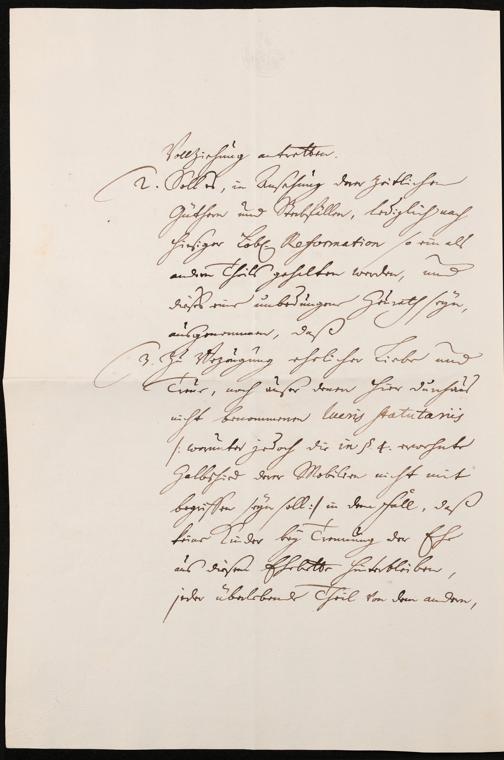 Vollziehung antretten.
2. Soll es, in Ansehung derer zeitlichen
Güthern und Sterbfällen, lediglich nach
hiesiger Löbl. Reformation so ein als
andern Theils gehalten werden, und
dieses eine unbedungene Heirath seyn,
ausgenommen, daß
3. Zu Bezeugung ehelicher Liebe und
Treue, noch ausser denen hier durchaus
nicht benommenen lucris statutariis
/: worunter jedoch die in § 4. erwehnte
Halbschied derer Mobilien nicht mit
begriffen seyn soll :/ in dem Fall, daß
keine Kinder bey Trennung der Ehe
aus diesem Ehebette hinterbleiben,
jeder überlebende Theil von dem andern,